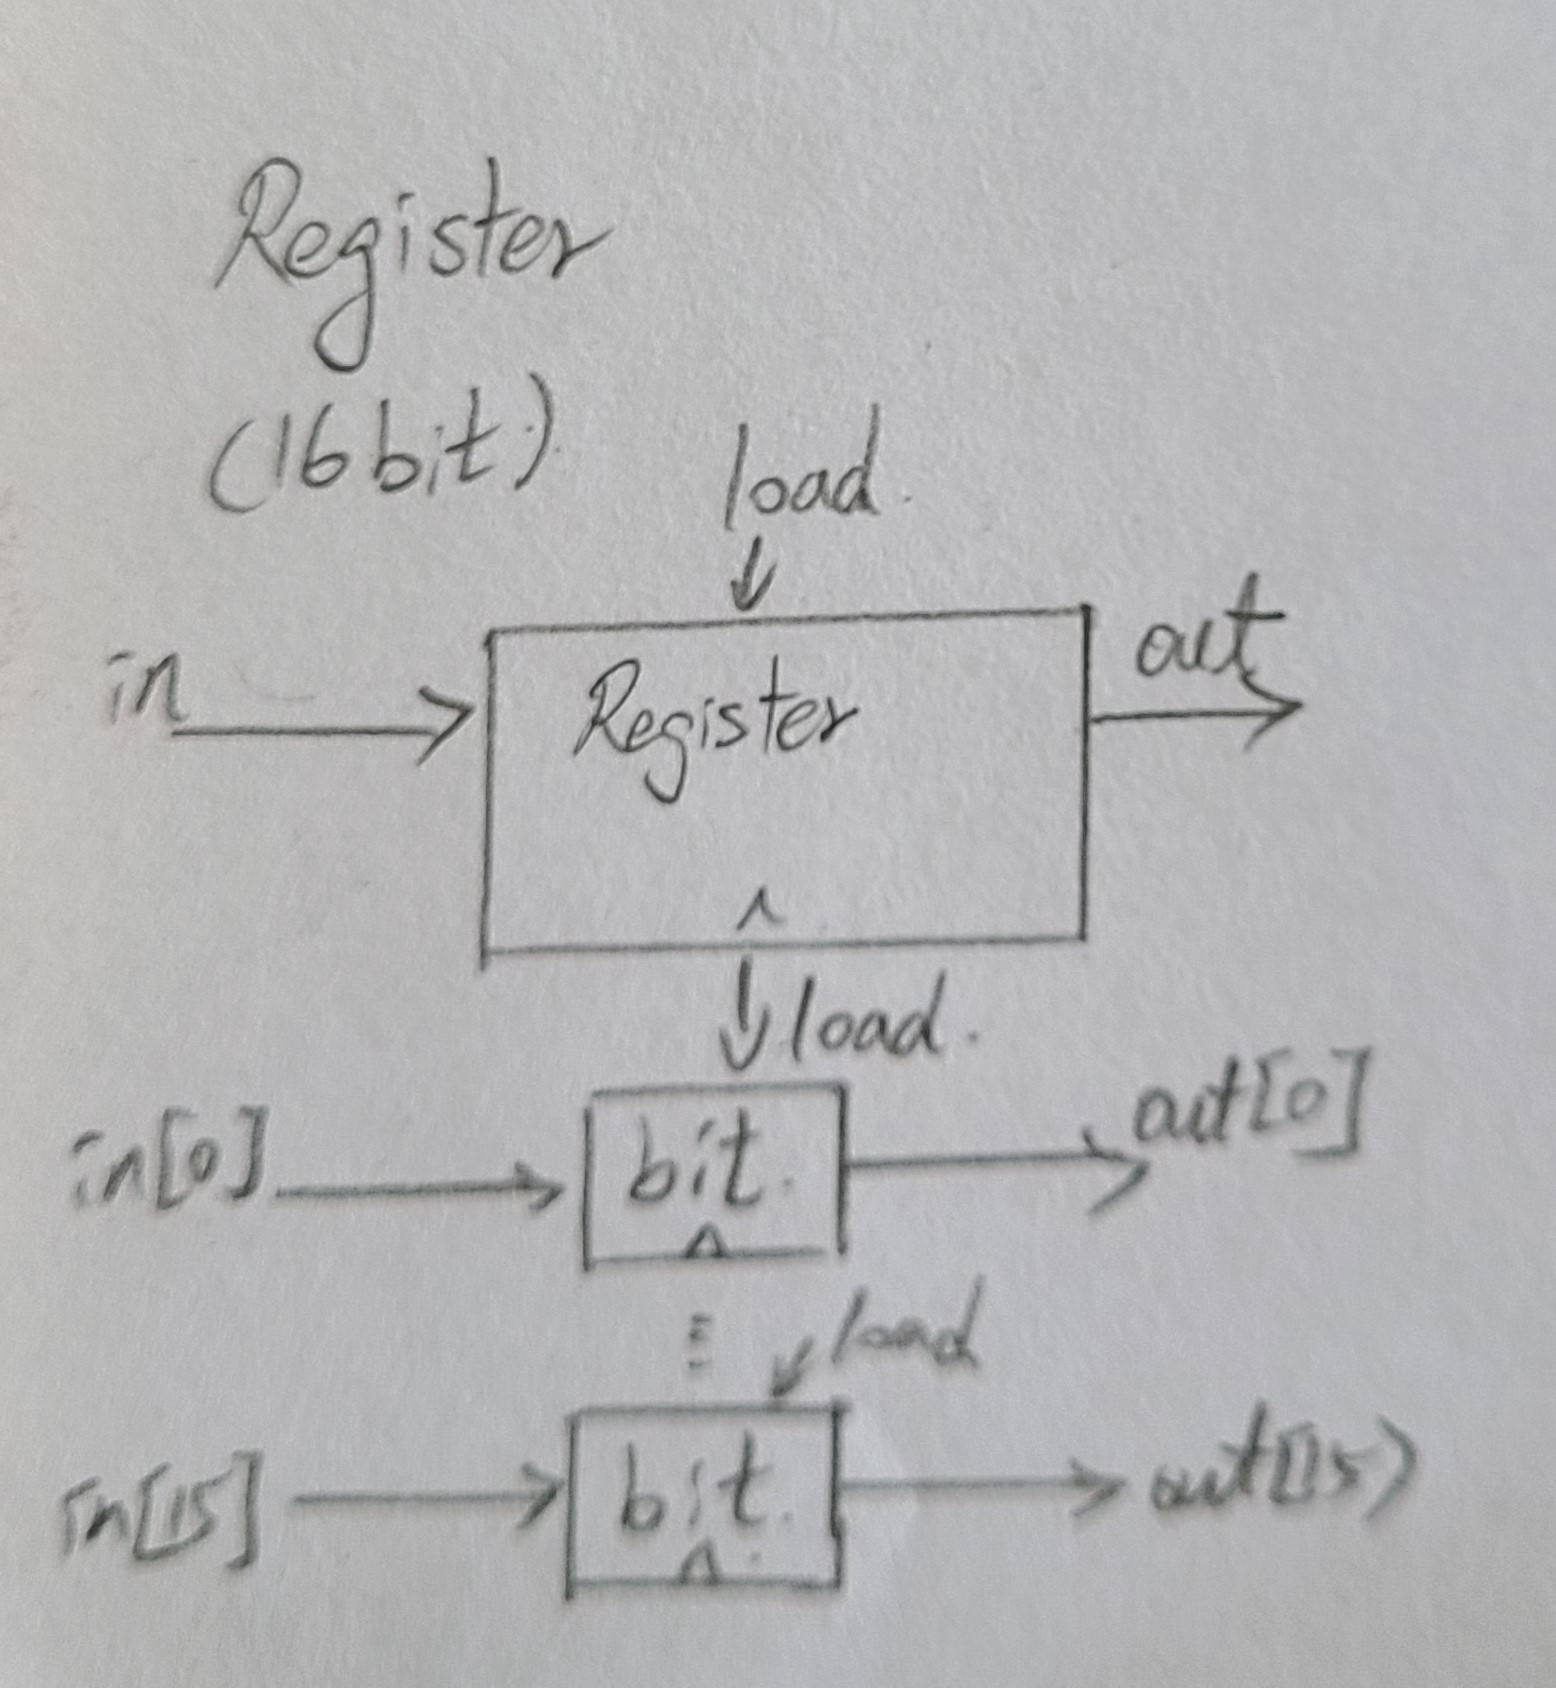 Register
(16 bit)
load.
in
out
Register
load.
in[0]
bit.
out[0]
load
in[15]
bit.
out[15)